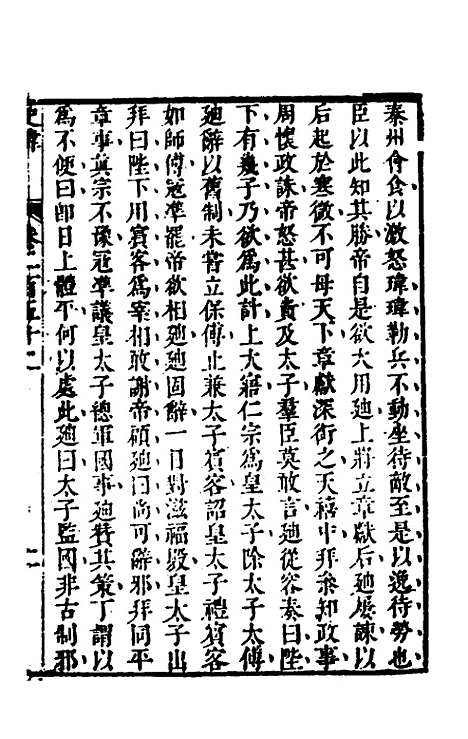 秦州會食以激怒瑋瑋勒兵不動坐待敵至是以逸待勞也
臣以此知其勝帝自是欲大用廸上將立章獻后廸屢諫以
后起於寒微不可母天下章獻深銜之天禧中拜叅知政事
周懷政誅帝怒甚欲責及太子羣臣莫敢言廸從容奏曰陛
下有幾子乃欲爲此計上大寤仁宗爲皇太子除太子太傅
廸辭以舊制未嘗立保傅止兼太子賓客詔皇太子禮賓客
如師傅冦凖罷帝欲相廸廸固辭一日對滋福殿皇太子出
拜曰陛下用賓客爲宰相敢謝帝顧廸曰尚可辭邪拜同平
章事眞宗不豫冦凖議皇太子總軍國事廸贊其策丁謂以
爲不便曰卽日上體平何以處此廸曰太子監國非古制邪
史緯
卷二百五十二
二